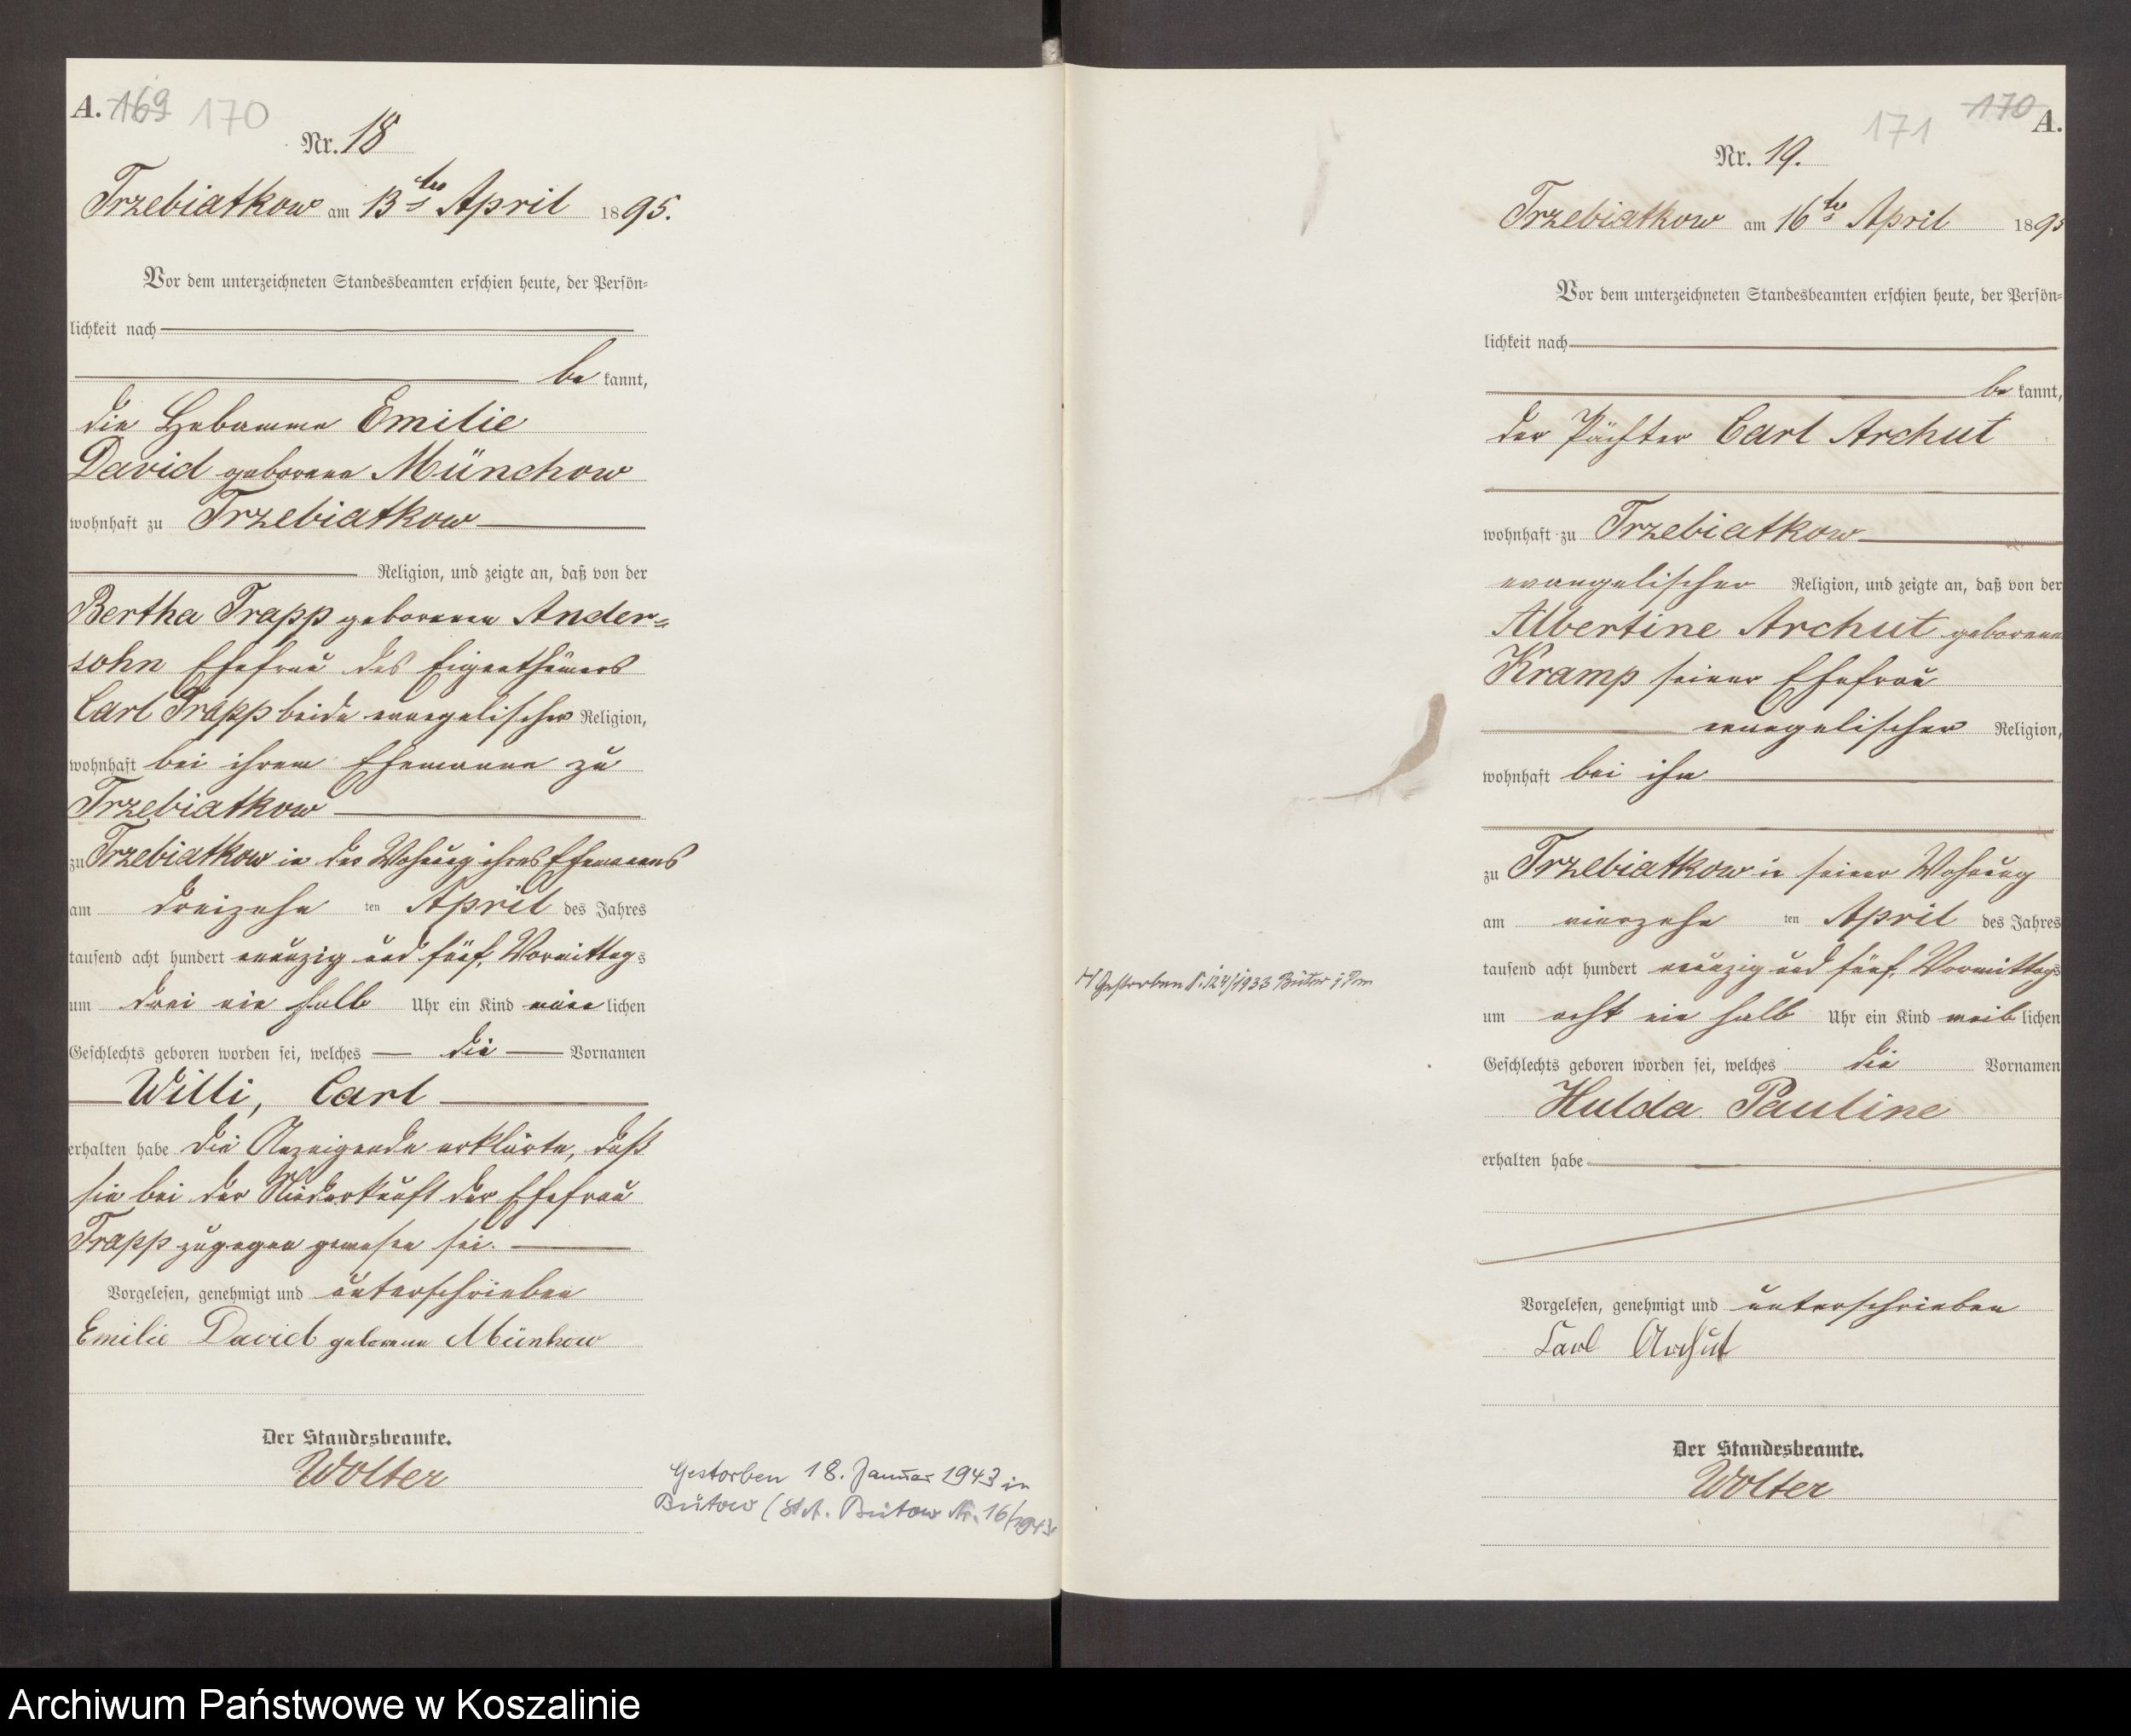 A. 169 170
Nr. 18
Trzebiatkow am 13ten April 1895.
Vor dem unterzeichneten Standesbeamten erschien heute, der Persön-
lichkeit nach
be kannt,
die Hebamme Emilie
David geborene Münchow
wohnhaft zu Trzebiatkow
Religion, und zeigte an, daß von der
Bertha Trapp geborenen Ander-
sohn Ehefrau des Eigenthümers
Carl Trapp beide evangelischer Religion,
wohnhaft bei ihrem Ehemanne zu
Trzebiatkow
zu Trzebiatkow in der Wohnung ihres Ehemanns
am dreizehn ten April des Jahres
tausend acht hundert neunzig und fünf, Vormittags
um drei ein halb Uhr ein Kind männlichen
Geschlechts geboren worden sei, welches die Vornamen
Willi, Carl
erhalten habe Die Anzeigende erklärte, daß
sie bei der Niederkunft der Ehefrau
Trapp zugegen gewesen sei.
Vorgelesen, genehmigt und unterschrieben
Emilie David geborene Münhow
Der Standesbeamte.
Wolter
Gestorben 18. Januar 1943 in
Bütow (St.A. Bütow Nr. 16/1943.
170 171 A.
Nr. 19.
Trzebiatkow am 16ten April 1895
Vor dem unterzeichneten Standesbeamten erschien heute, der Persön-
lichkeit nach
be kannt,
der Pächter Carl Archut
wohnhaft zu Trzebiatkow
evangelischer Religion, und zeigte an, daß von der
Albertine Archut geborene
Kramp seiner Ehefrau
evangelischer Religion,
wohnhaft bei ihm
zu Trzebiatkow in seiner Wohnung
am vierzehn ten April des Jahres
tausend acht hundert neunzig und fünf, Vormittags
um acht ein halb Uhr ein Kind weiblichen
Geschlechts geboren worden sei, welches die Vornamen
Hulda Pauline
erhalten habe
Vorgelesen, genehmigt und unterschrieben
Carl Archut
Der Standesbeamte.
Wolter
Gestorben 124/1933 Bütow i Pom
Archiwum Państwowe w Koszalinie